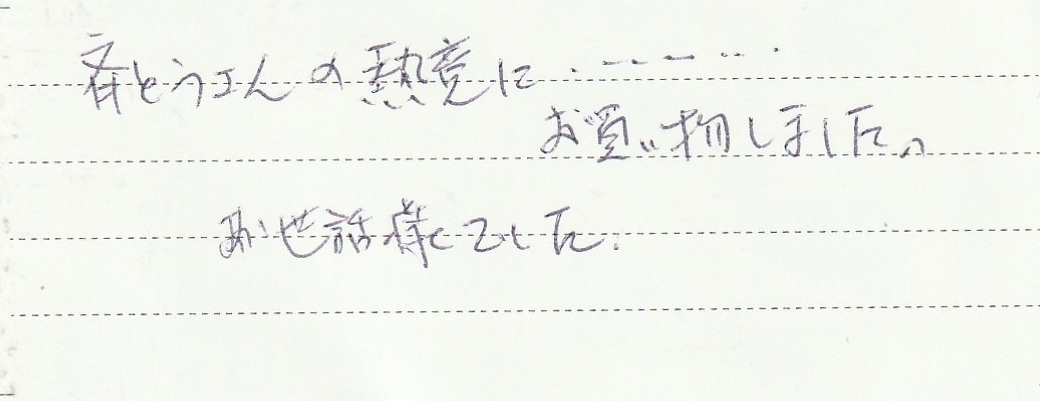 斉とうさんの熱意に・・・・・・・
お買い物しました。
お世話様でした。